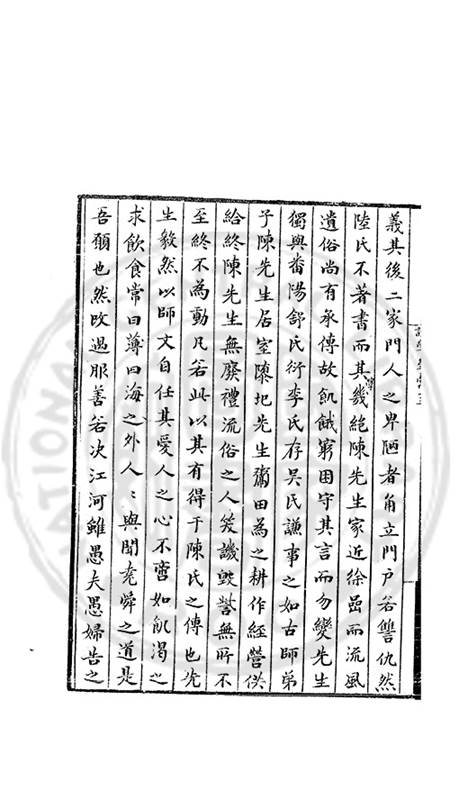 義其後二家門人之卑陋者角立門戶若讐仇然
陸氏不著書而其傳幾絕陳先生家近徐嵒而流風
遺俗尚有承傳故飢餓窮困守其言而勿變先生
獨與番陽舒氏衍李氏存吳氏謙事之如古師弟
子陳先生居室陊圮先生鬻田為之耕作經營供
給終陳先生無廢禮流俗之人笑譏毀訾無所不
至終不為動凡若此以其有得于陳氏之傳也先
生毅然以師文自任其愛人之心不啻如飢渴之
求飲食常曰薄四海之外人〻與聞堯舜之道是
吾願也然改過服善若决江河雖愚夫愚婦告之
NATIONAL